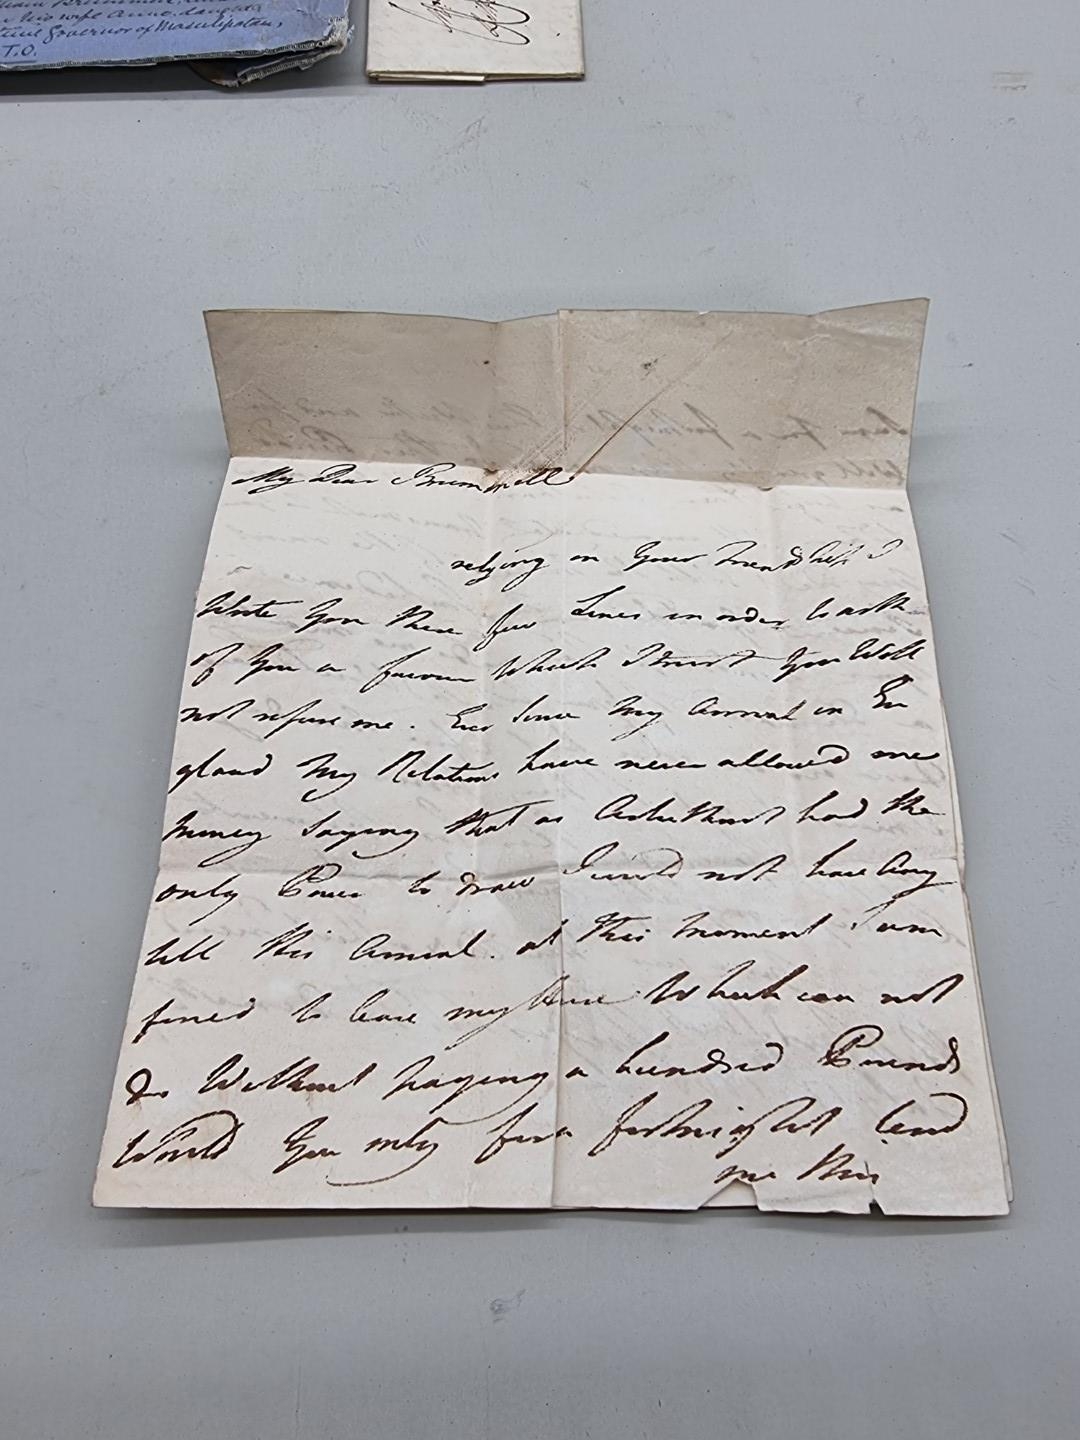 his wife Anne, daughter
Governor of Masulipatam,
T.O.
My Dear Brummell
relying on Your friendship I
Write You these few Lines in order to ask
of You a favour Which I trust You Will
not refuse me. Ever since My arrival in En
gland My Relations have never allowed me
money saying that as Arbuthnot had the
only Power to draw I could not have Any
till His Arrival. at this moment I am
forced to leave my House Which can not
do Without paying a hundred Pounds
Would You only for a fortnight lend
me this